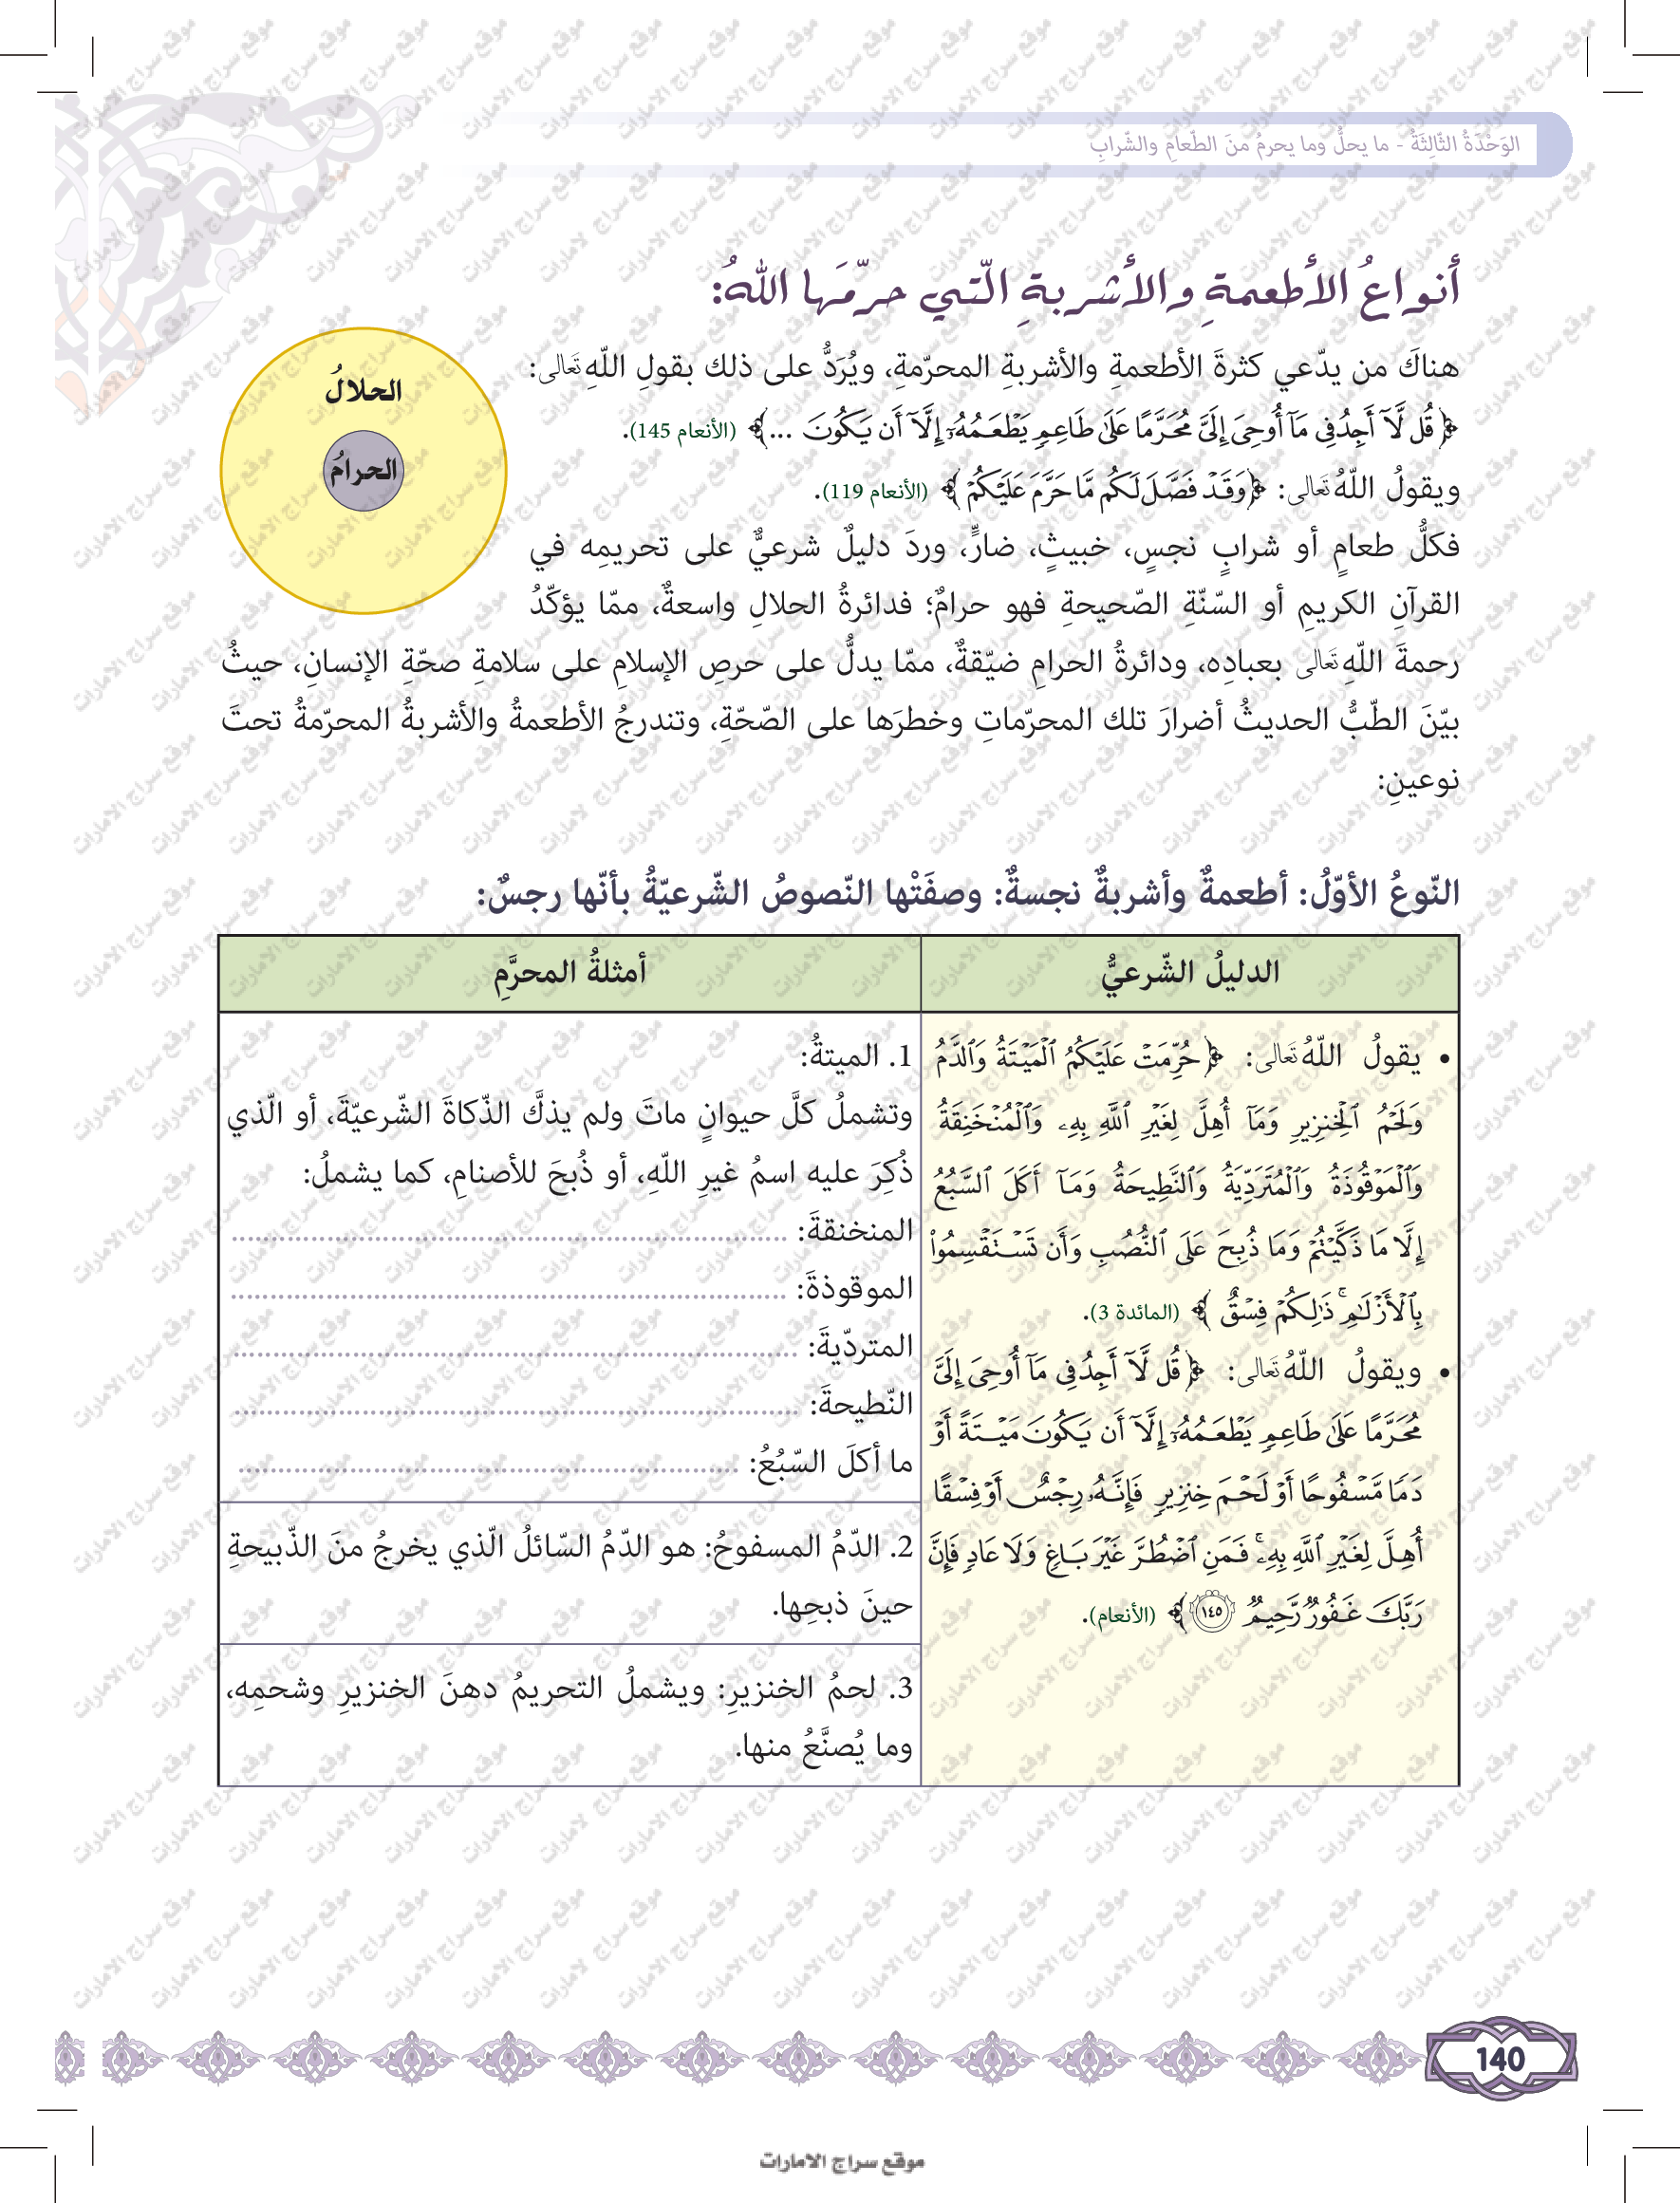 الوَحْدَةُ الثّالِثَةُ - ما يحلُّ وما يحرمُ منَ الطّعامِ والشّرابِ
أنواعُ الأطعمةِ والأشربةِ الّتي حرّمَها اللهُ:
هناكَ من يدّعي كثرةَ الأطعمةِ والأشربةِ المحرّمةِ، ويُرَدُّ على ذلك بقولِ اللّهِ تَعَالَى:
﴿قُل لَّآ أَجِدُ فِى مَآ أُوحِىَ إِلَىَّ مُحَرَّمًا عَلَىٰ طَاعِمٍ يَطْعَمُهُۥٓ إِلَّآ أَن يَكُونَ ...﴾ (الأنعام 145).
ويقولُ اللّهُ تَعَالَى: ﴿وَقَدْ فَصَّلَ لَكُم مَّا حَرَّمَ عَلَيْكُمْ﴾ (الأنعام 119).
فكلُّ طعامٍ أو شرابٍ نجسٍ، خبيثٍ، ضارٍّ، وردَ دليلٌ شرعيٌّ على تحريمِه في
القرآنِ الكريمِ أو السّنّةِ الصّحيحةِ فهو حرامٌ؛ فدائرةُ الحلالِ واسعةٌ، ممّا يؤكّدُ
رحمةَ اللّهِ تَعَالَى بعبادِه، ودائرةُ الحرامِ ضيّقةٌ، ممّا يدلُّ على حرصِ الإسلامِ على سلامةِ صحّةِ الإنسانِ، حيثُ
بيّنَ الطّبُّ الحديثُ أضرارَ تلك المحرّماتِ وخطرَها على الصّحّةِ، وتندرجُ الأطعمةُ والأشربةُ المحرّمةُ تحتَ
نوعينِ:
الحلالُ
الحرامُ
النّوعُ الأوّلُ: أطعمةٌ وأشربةٌ نجسةٌ: وصفَتْها النّصوصُ الشّرعيّةُ بأنّها رجسٌ:
الدليلُ الشّرعيُّ
• يقولُ اللّهُ تَعَالَى: ﴿حُرِّمَتْ عَلَيْكُمُ ٱلْمَيْتَةُ وَٱلدَّمُ
وَلَحْمُ ٱلْخِنزِيرِ وَمَآ أُهِلَّ لِغَيْرِ ٱللَّهِ بِهِۦ وَٱلْمُنْخَنِقَةُ
وَٱلْمَوْقُوذَةُ وَٱلْمُتَرَدِّيَةُ وَٱلنَّطِيحَةُ وَمَآ أَكَلَ ٱلسَّبُعُ
إِلَّا مَا ذَكَّيْتُمْ وَمَا ذُبِحَ عَلَى ٱلنُّصُبِ وَأَن تَسْتَقْسِمُوا۟
بِٱلْأَزْلَٰمِ ۚ ذَٰلِكُمْ فِسْقٌ﴾ (المائدة 3).
• ويقولُ اللّهُ تَعَالَى: ﴿قُل لَّآ أَجِدُ فِى مَآ أُوحِىَ إِلَىَّ
مُحَرَّمًا عَلَىٰ طَاعِمٍ يَطْعَمُهُۥٓ إِلَّآ أَن يَكُونَ مَيْتَةً أَوْ
دَمًا مَّسْفُوحًا أَوْ لَحْمَ خِنزِيرٍ فَإِنَّهُۥ رِجْسٌ أَوْ فِسْقًا
أُهِلَّ لِغَيْرِ ٱللَّهِ بِهِۦ ۚ فَمَنِ ٱضْطُرَّ غَيْرَ بَاغٍ وَلَا عَادٍ فَإِنَّ
رَبَّكَ غَفُورٌ رَّحِيمٌ ١٤٥﴾ (الأنعام).
أمثلةُ المحرَّمِ
1. الميتةُ:
وتشملُ كلَّ حيوانٍ ماتَ ولم يذكَّ الذّكاةَ الشّرعيّةَ، أو الّذي
ذُكِرَ عليه اسمُ غيرِ اللّهِ، أو ذُبحَ للأصنامِ، كما يشملُ:
المنخنقةَ: ......................................................................
الموقوذةَ: ......................................................................
المتردّيةَ: ......................................................................
النّطيحةَ: ......................................................................
ما أكلَ السّبُعُ: ...............................................................
2. الدّمُ المسفوحُ: هو الدّمُ السّائلُ الّذي يخرجُ منَ الذّبيحةِ
حينَ ذبحِها.
3. لحمُ الخنزيرِ: ويشملُ التحريمُ دهنَ الخنزيرِ وشحمِه،
وما يُصنَّعُ منها.
140
موقع سراج الامارات